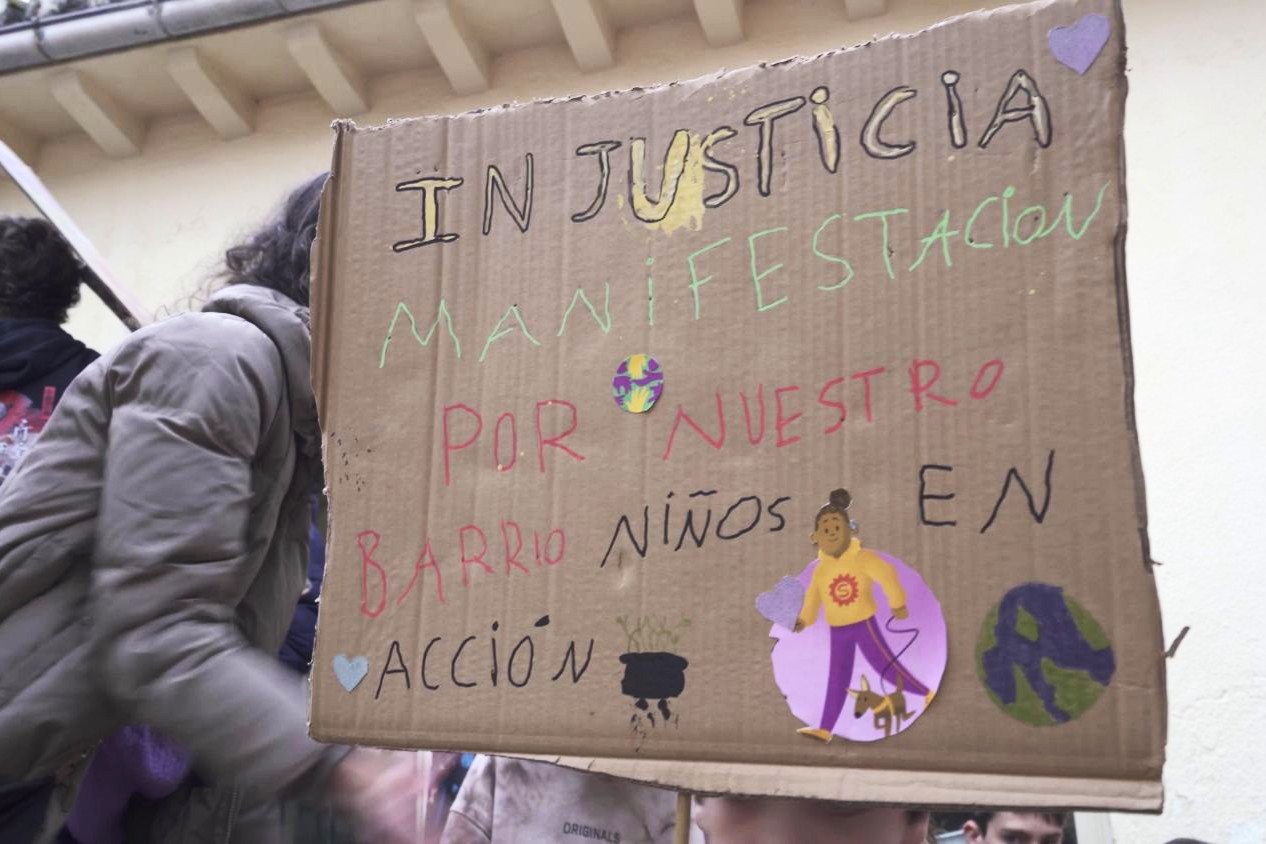 INJUSTiCiA
MANiFESTACiON
POR NUESTRO
BARRIO NiÑOS EN
ACCIÓN
S
ORIGINALS